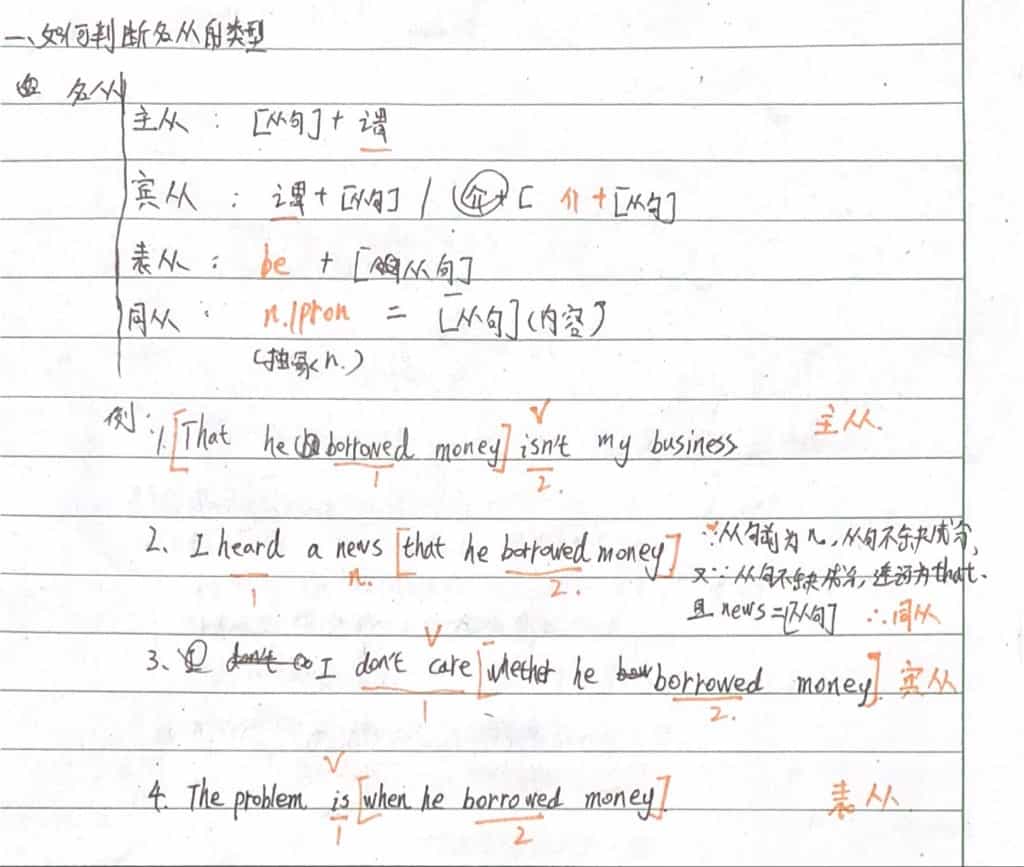 一、如何判断名从的类型
名从
主从: [从句] + 谓
宾从: 谓 + [从句] / 介 + [ 介 + [从句]
表从: be + [从句]
同从: n./pron = [从句](内容)
(抽象 n.)
例: 1. [That he borrowed money] isn't my business 主从.
1 2.
2. I heard a news [that he borrowed money] ∵从句前为n,从句不缺成分,
1 n. 2. 又∵从句不缺成分,连词为that.
且 news=[从句] ∴同从
3、 I don't care [whether he borrowed money]. 宾从
1 2.
4. The problem is [when he borrowed money]. 表从
1 2